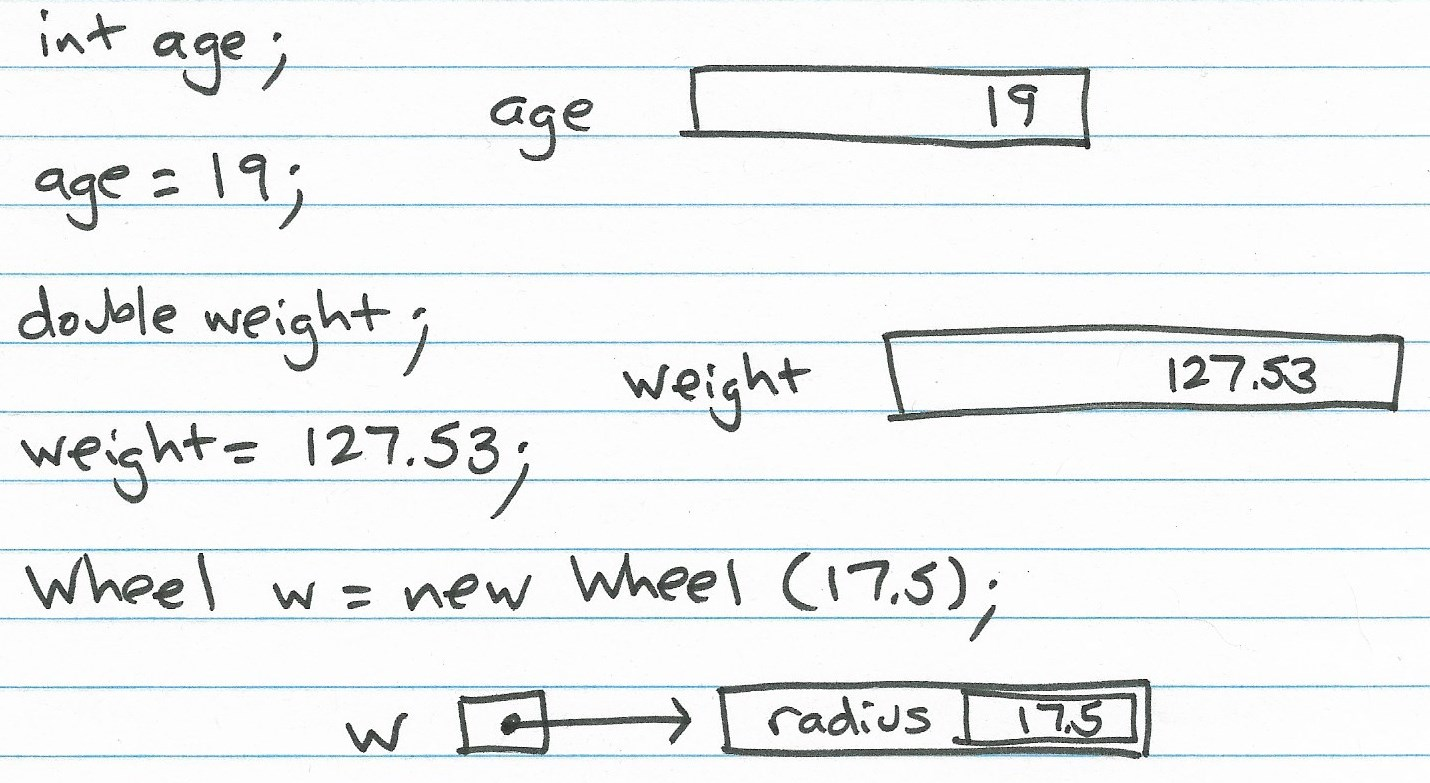 int age;
age 19
age = 19;
double weight;
weight 127.53
weight = 127.53;
Wheel w = new Wheel (17.5);
w radius 17.5